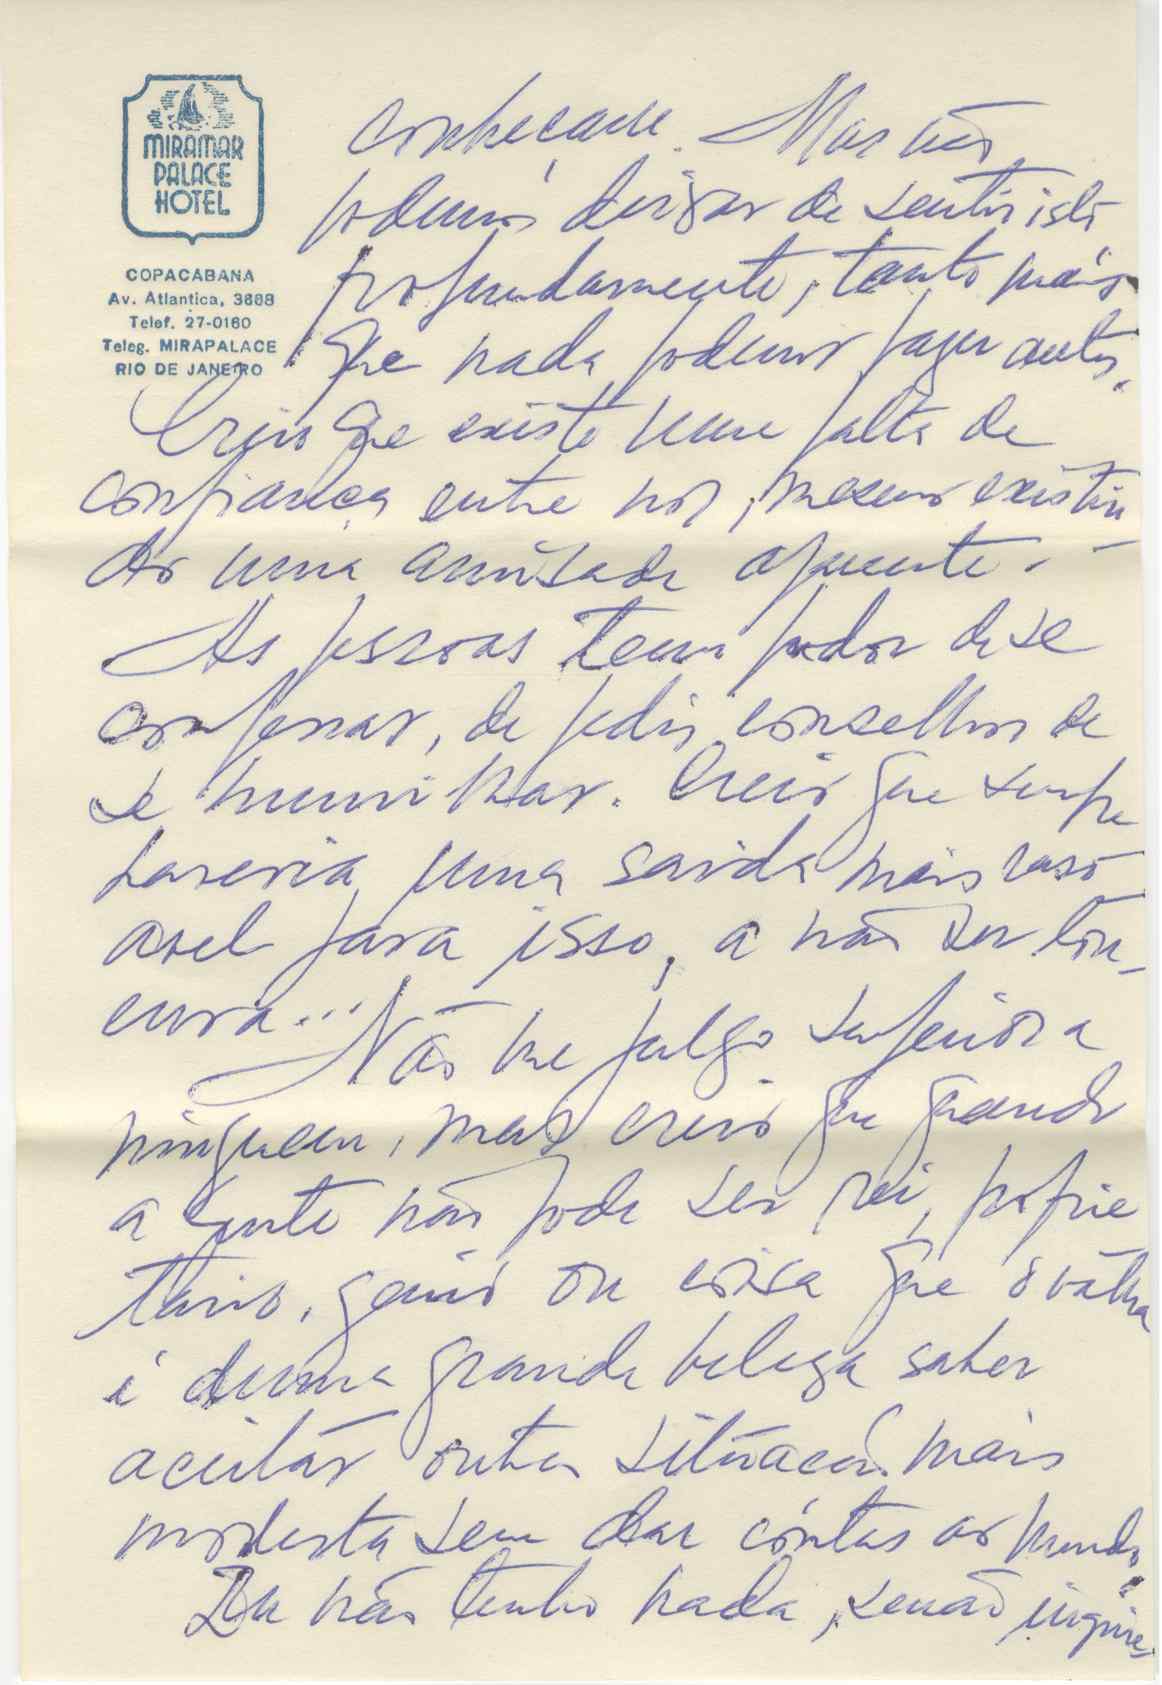 MIRAMAR
PALACE
HOTEL
COPACABANA
Av. Atlantica, 3668
Telef. 27-0160
Teleg. MIRAPALACE
RIO DE JANEIRO
conheçam. Mas não
podemos deixar de sentir isto
profundamente, tanto mais
que nada podemos fazer antes.
Creio que existe uma falta de
confiança entre nos, mesmo existin
do uma amisade aparente.
As pessoas tem pudor de se
confessar, de pedir conselhos de
se humilhar. Creio que sempre
haveria uma saida mais raso
avel para isso, a não ser lou-
cura... Não me julgo superior a
ninguem, mas creio que quando
a gente não pode ser rei, proprie
tario, genio ou coisa que o valha
é duma grande beleza saber
aceitar outra situacão mais
modesta sem dar contas ao mundo.
Eu não tenho nada, senão